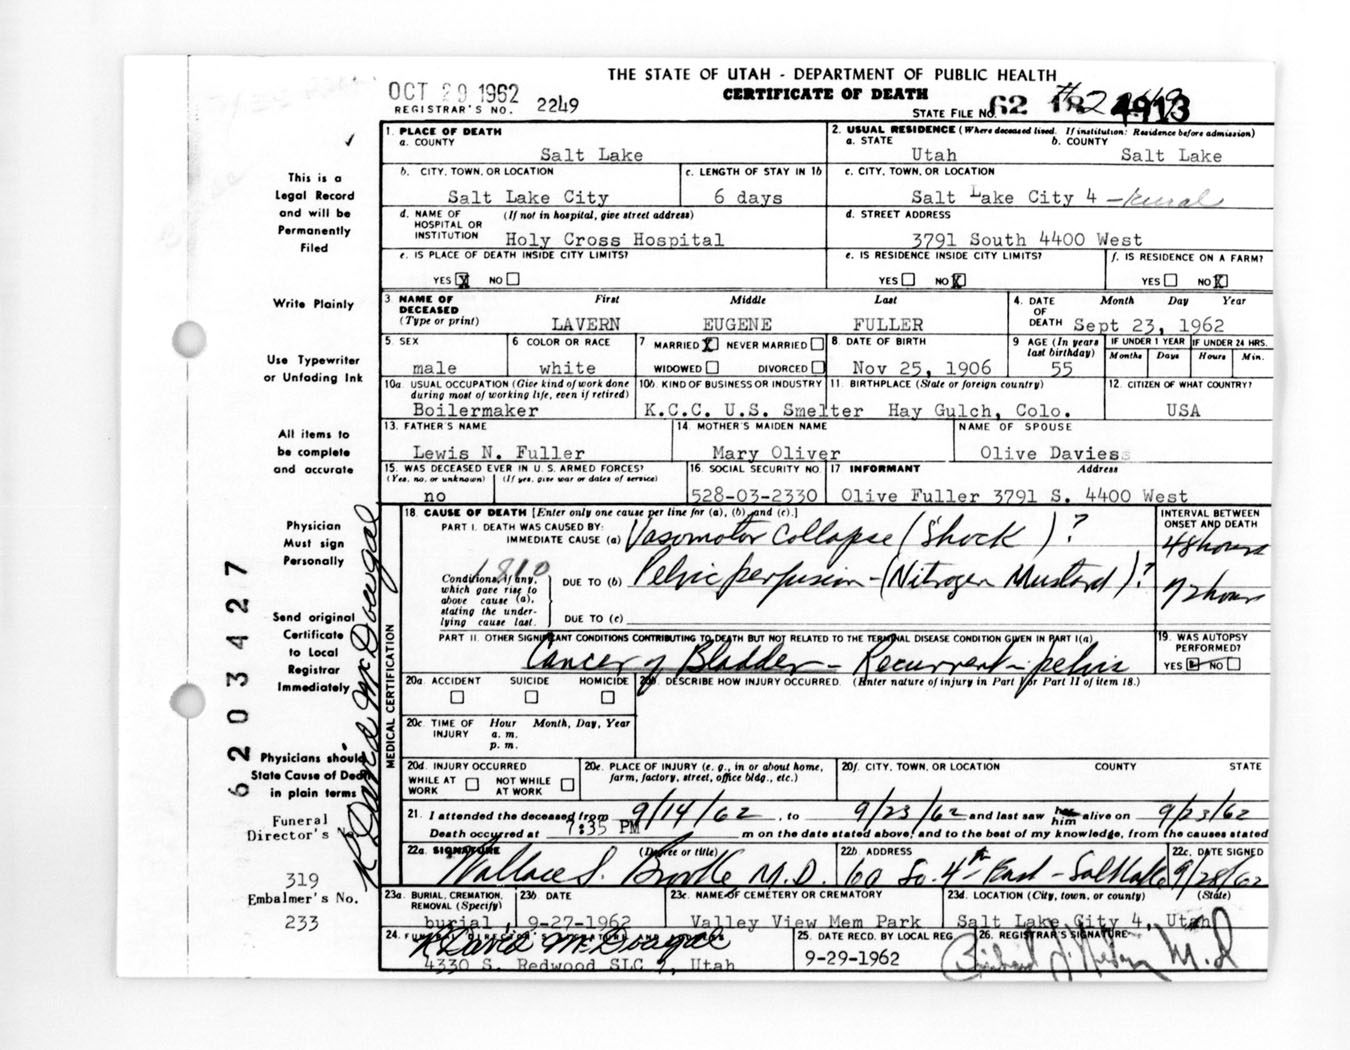 THE STATE OF UTAH - DEPARTMENT OF PUBLIC HEALTH
CERTIFICATE OF DEATH
OCT 29 1962
REGISTRAR'S NO. 2249
STATE FILE NO. 62 18 4913
1. PLACE OF DEATH
a. COUNTY
Salt Lake
2. USUAL RESIDENCE (Where deceased lived. If institution: Residence before admission)
a. STATE b. COUNTY
Utah Salt Lake
b. CITY, TOWN, OR LOCATION
Salt Lake City
c. LENGTH OF STAY IN 1b
6 days
c. CITY, TOWN, OR LOCATION
Salt Lake City 4 - Rural
d. NAME OF HOSPITAL OR INSTITUTION (If not in hospital, give street address)
Holy Cross Hospital
d. STREET ADDRESS
3791 South 4400 West
e. IS PLACE OF DEATH INSIDE CITY LIMITS?
YES X NO
e. IS RESIDENCE INSIDE CITY LIMITS?
YES NO X
f. IS RESIDENCE ON A FARM?
YES NO X
3. NAME OF DECEASED (Type or print) First Middle Last
LAVERN EUGENE FULLER
4. DATE OF DEATH Month Day Year
Sept 23, 1962
5. SEX
male
6 COLOR OR RACE
white
7 MARRIED X NEVER MARRIED
WIDOWED DIVORCED
8. DATE OF BIRTH
Nov 25, 1906
9 AGE (In years last birthday)
55
IF UNDER 1 YEAR IF UNDER 24 HRS.
Months Days Hours Min.
10a. USUAL OCCUPATION (Give kind of work done during most of working life, even if retired)
Boilermaker
10b. KIND OF BUSINESS OR INDUSTRY
K.C.C. U.S. Smelter
11. BIRTHPLACE (State or foreign country)
Hay Gulch, Colo.
12. CITIZEN OF WHAT COUNTRY?
USA
13. FATHER'S NAME
Lewis N. Fuller
14. MOTHER'S MAIDEN NAME
Mary Oliver
NAME OF SPOUSE
Olive Daviess
15. WAS DECEASED EVER IN U.S. ARMED FORCES?
(Yes, no, or unknown) (If yes, give war or dates of service)
no
16. SOCIAL SECURITY NO.
528-03-2330
17 INFORMANT Address
Olive Fuller 3791 S. 4400 West
18. CAUSE OF DEATH [Enter only one cause per line for (a), (b), and (c).]
INTERVAL BETWEEN ONSET AND DEATH
PART I. DEATH WAS CAUSED BY:
IMMEDIATE CAUSE (a) Vasomotor Collapse (Shock) ?
48 hours
1810
Conditions, if any, which gave rise to above cause (a), stating the underlying cause last.
DUE TO (b) Pelvic perfusion - (Nitrogen Mustard) ?
72 hours
DUE TO (c)
PART II. OTHER SIGNIFICANT CONDITIONS CONTRIBUTING TO DEATH BUT NOT RELATED TO THE TERMINAL DISEASE CONDITION GIVEN IN PART I(a)
Cancer of Bladder - Recurrent - pelvis
19. WAS AUTOPSY PERFORMED?
YES NO
20a. ACCIDENT SUICIDE HOMICIDE
20b. DESCRIBE HOW INJURY OCCURRED. (Enter nature of injury in Part I or Part II of item 18.)
20c. TIME OF INJURY Hour Month, Day, Year
a. m.
p. m.
20d. INJURY OCCURRED
WHILE AT WORK NOT WHILE AT WORK
20e. PLACE OF INJURY (e. g., in or about home, farm, factory, street, office bldg., etc.)
20f. CITY, TOWN, OR LOCATION COUNTY STATE
21. I attended the deceased from 9/14/62, to 9/23/62 and last saw him alive on 9/23/62
Death occurred at 7:35 PM m on the date stated above, and to the best of my knowledge, from the causes stated
22a. SIGNATURE (Degree or title)
Wallace S. Brooke M.D.
22b. ADDRESS
60 So. 4th East - Salt Lake
22c. DATE SIGNED
9/28/62
23a. BURIAL, CREMATION, REMOVAL (Specify)
burial
23b. DATE
9-27-1962
23c. NAME OF CEMETERY OR CREMATORY
Valley View Mem Park
23d. LOCATION (City, town, or county) (State)
Salt Lake City 4, Utah
24. R David McDougal
4330 S. Redwood SLC 7, Utah
25. DATE RECD. BY LOCAL REG.
9-29-1962
26. REGISTRAR'S SIGNATURE
M.D
This is a
Legal Record
and will be
Permanently
Filed
Write Plainly
Use Typewriter
or Unfading Ink
All items to
be complete
and accurate
Physician
Must sign
Personally
Send original
Certificate
to Local
Registrar
Immediately
Physicians should
State Cause of Death
in plain terms
Funeral
Director's No
319
Embalmer's No.
233
6203427
R David McDougal
MEDICAL CERTIFICATION